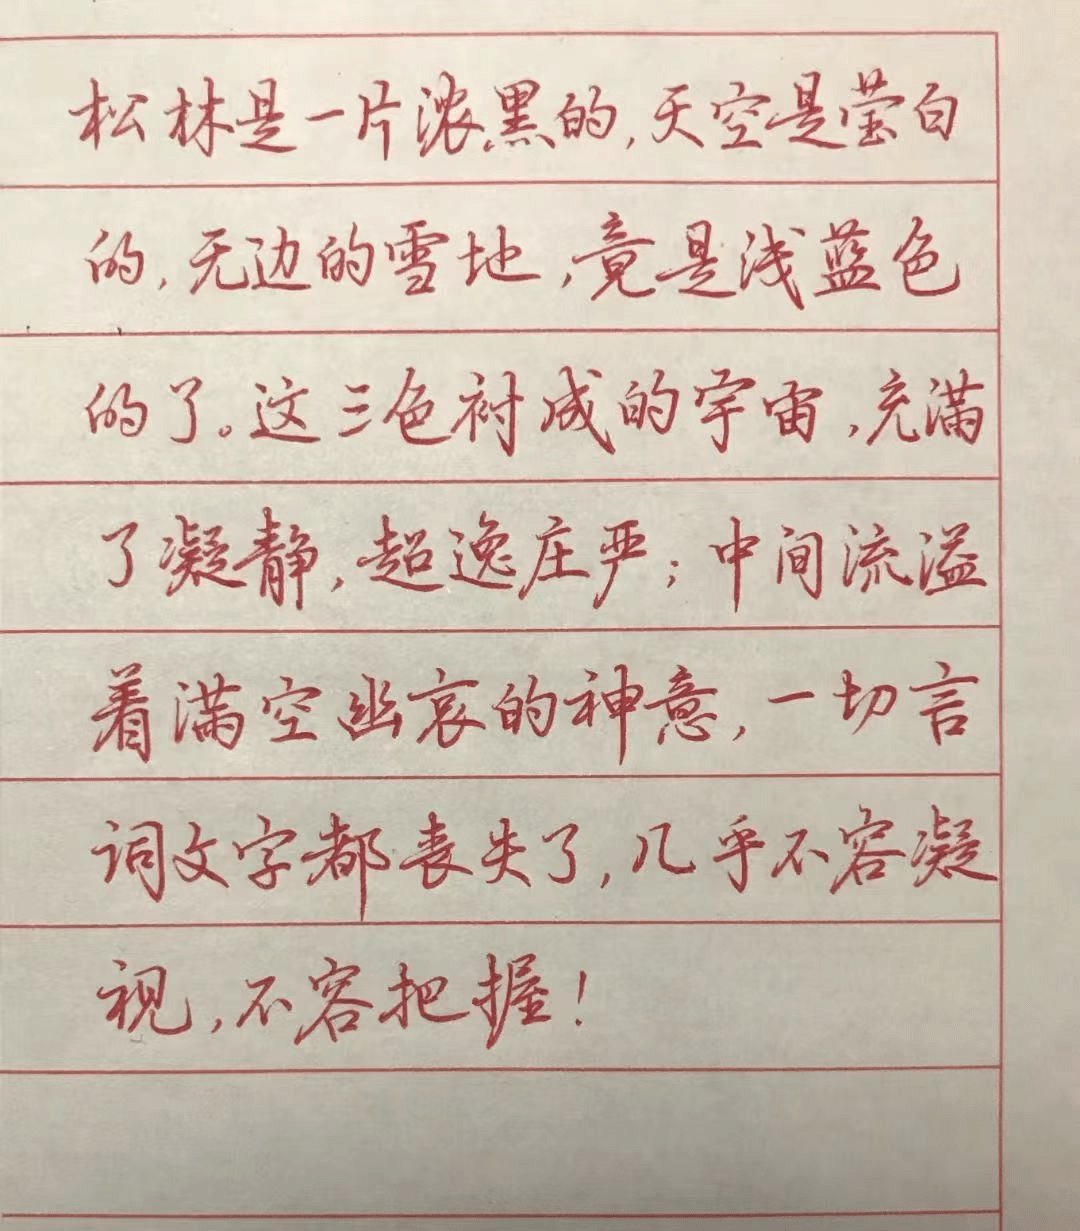 松林是一片浓黑的,天空是莹白
的,无边的雪地,竟是浅蓝色
的了。这三色衬成的宇宙,充满
了凝静,超逸庄严;中间流溢
着满空幽哀的神意,一切言
词文字都丧失了,几乎不容凝
视,不容把握!